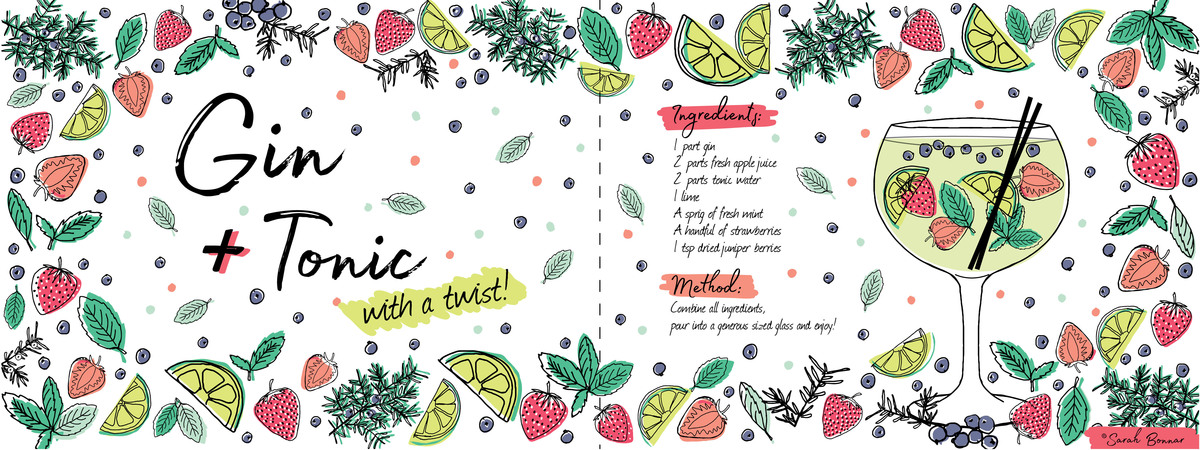 Gin
+ Tonic
with a twist!
Ingredients:
1 part gin
2 parts fresh apple juice
2 parts tonic water
1 lime
A sprig of fresh mint
A handful of strawberries
1 tsp dried juniper berries
Method:
Combine all ingredients,
pour into a generous sized glass and enjoy!
© Sarah Bonnar